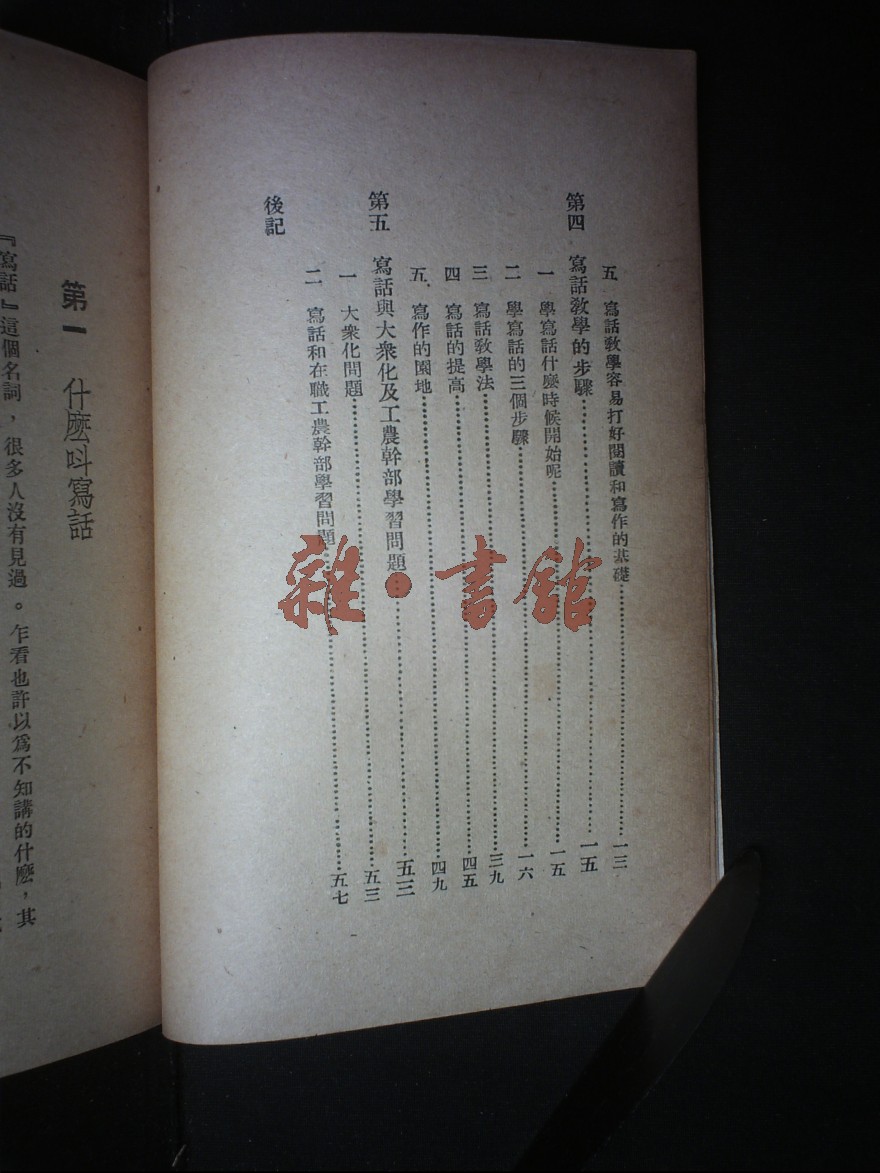 五 寫話敎學容易打好閱讀和寫作的基礎……一三
第四 寫話敎學的步驟……一五
一 學寫話什麽時候開始呢……一五
二 學寫話的三個步驟……一六
三 寫話敎學法……三九
四 寫話的提高……四五
五 寫作的園地……四九
第五 寫話與大衆化及工農幹部學習問題……五三
一 大衆化問題……五三
二 寫話和在職工農幹部學習問題……五七
後記
第一 什麽叫寫話
『寫話』這個名詞，很多人沒有見過。乍看也許以爲不知講的什麽，其
雜·書館